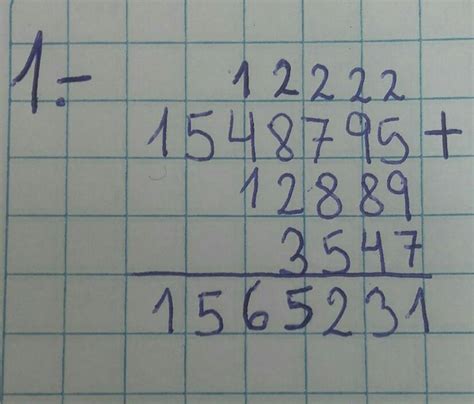 1.-
12222
1548795+
12889
3547
1565231